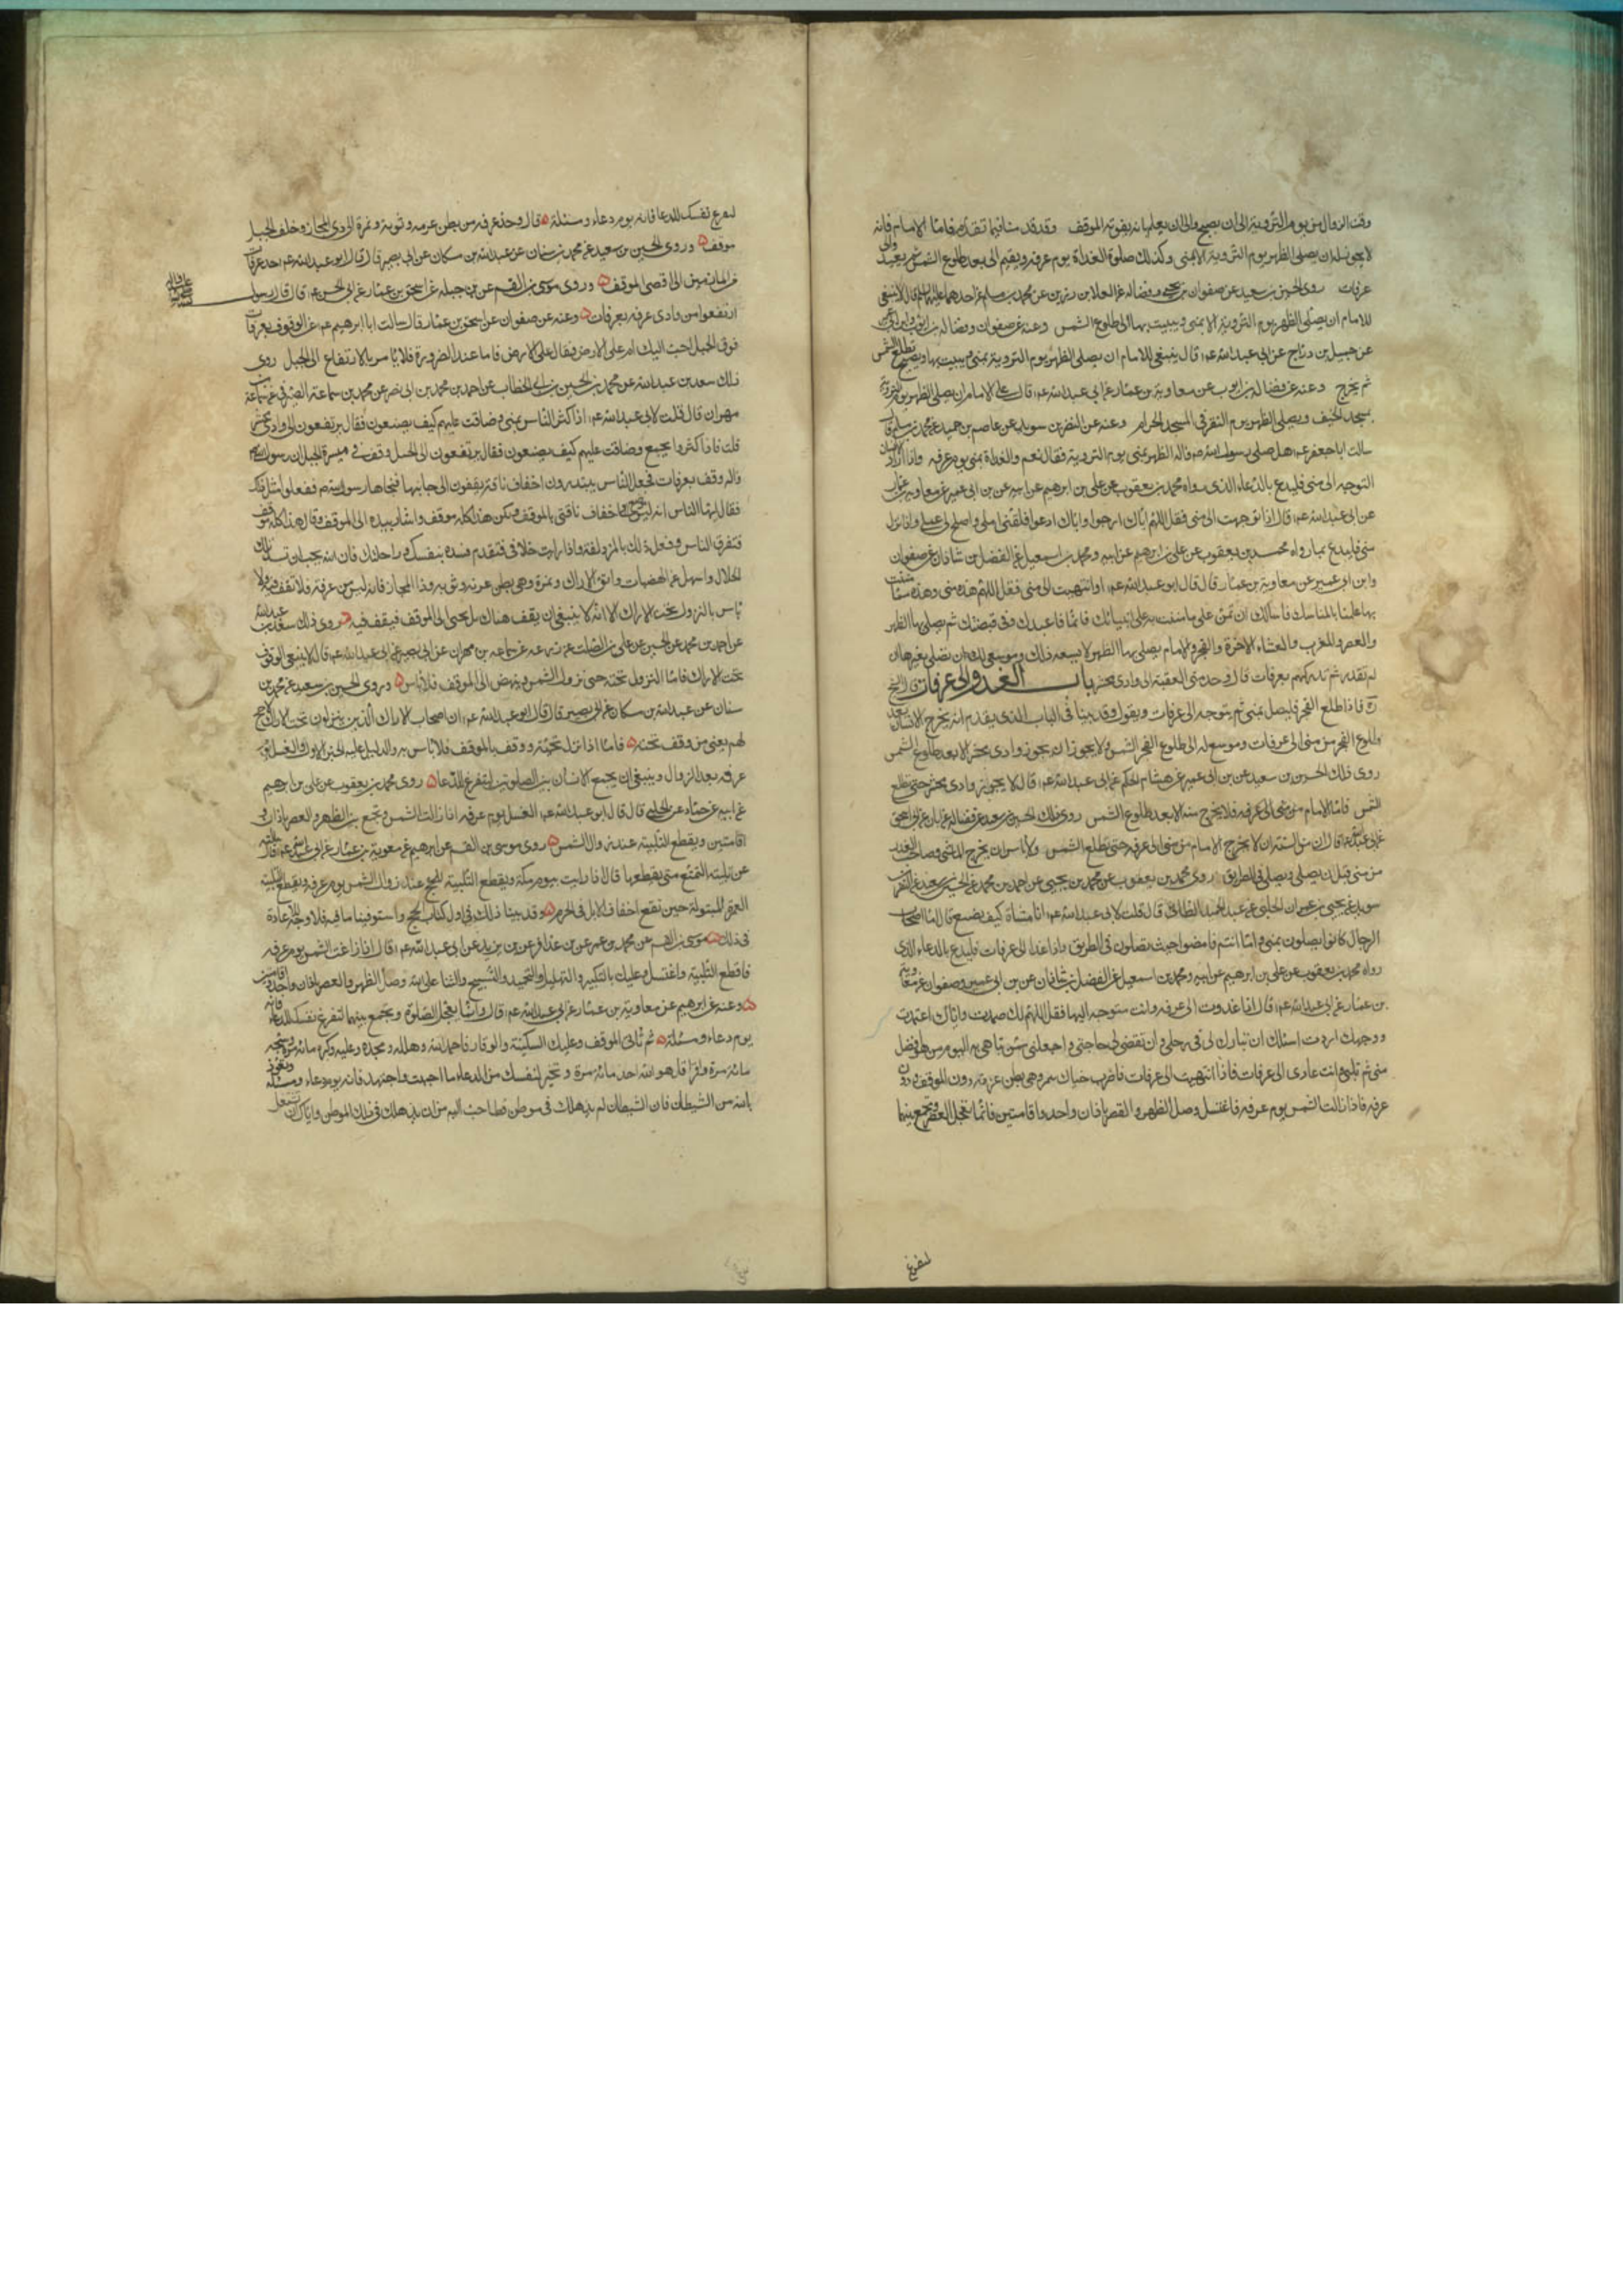 وقت الزوال من يوم التروية الى ان يصبح والى ان يعلم انه يفوته الموقف وقد قدمنا فيما تقدم فاما الامام فانه
لا يجوز له ان يصلى الظهر يوم التروية الا بمنى وكذلك صلوة الغداة يوم عرفه ويقيم الى بعد طلوع الشمس ثم يغدو الى
عرفات روى الحسين بن سعيد عن صفوان بن يحيى وفضاله عن العلا بن رزين عن محمد بن مسلم عن احدهما عليهما السلم قال لا ينبغى
للامام ان يصلى الظهر يوم التروية الا بمنى ويبيت بها الى طلوع الشمس وعنه عن صفوان وفضاله بن ايوب وابن ابى عمير
عن جميل بن دراج عن ابى عبد الله ع قال ينبغى للامام ان يصلى الظهر يوم التروية بمنى ويبيت بها ويصبح حتى تطلع الشمس
ثم يخرج وعنه عن فضاله بن ايوب عن معاوية بن عمار عن ابى عبد الله ع قال على الامام ان يصلى الظهر يوم التروية
بمسجد الخيف ويصلى الظهر يوم النفر فى المسجد الحرام وعنه عن النضر بن سويد عن عاصم بن حميد عن محمد بن مسلم قال
سالت ابا جعفر ع هل صلى رسول الله ص الظهر بمنى يوم التروية فقال نعم والغداة بمنى يوم عرفه واذا اراد الانسان
التوجه الى منى فليدع بالدعاء الذى رواه محمد بن يعقوب عن على بن ابرهيم عن ابيه عن بن ابى عمير عن معاوية بن عمار
عن ابى عبد الله ع قال اذا توجهت الى منى فقل اللهم اياك ارجوا واياك ادعوا فبلغنى املى واصلح لى عملى واذا نزل
منى فليدع بما رواه محمد بن يعقوب عن على بن ابرهيم عن ابيه ومحمد بن اسمعيل عن الفضل بن شاذان عن صفوان
وابن ابى عمير عن معاوية بن عمار قال قال ابو عبد الله ع اذا انتهيت الى منى فقل اللهم هذه منى وهذه مما مننت
بها علينا بالمناسك فاسألك ان تمن على بما مننت به على انبيائك فانما انا عبدك وفى قبضتك ثم يصلى بها الظهر
والعصر والمغرب والعشاء الاخرة والفجر والامام يصلى بها الظهر لا يسعه ذلك وموسع لك ان تصلى بغيرها ان
لم تقدر ثم تدركهم بعرفات قال وحد منى العقبة الى وادى محسر باب الغدو الى عرفات قال الشيخ
ره فاذا طلع الفجر فليصل بمنى ثم يتوجه الى عرفات ويقول وقد بينا فى الباب الذى يقدم انه يخرج الانسان بعد
طلوع الفجر من منى الى عرفات وموسع له الى طلوع الفجر الشمس ولا يجوز ان يجوز وادى محسر الا بعد طلوع الشمس
روى ذلك الحسين بن سعيد عن بن ابى عمير عن هشام بن الحكم عن ابى عبد الله ع قال لا يجوز وادى محسر حتى تطلع
الشمس فاما الامام من منى الى عرفه فلا يخرج منه الا بعد طلوع الشمس روى ذلك الحسين بن سعيد عن فضاله بن ابان عن ابى اسحق
عن ابى عبد الله ع قال ان من السنة ان لا يخرج الامام من منى الى عرفه حتى تطلع الشمس ولا باس ان يخرج الماشى وصاحب العذر
من منى قبل ان يصلى ويصلى فى الطريق روى محمد بن يعقوب عن محمد بن يحيى عن احمد بن محمد عن الحسين بن سعيد عن النضر بن
سويد عن يحيى بن عمران الحلبى عن عبد الحميد الطائى قال قلت لابى عبد الله ع انا مشاة كيف نصنع قال اما اصحاب
الرحال كانوا يصلون بمنى واما انتم فامضوا حيث تصلون فى الطريق واذا غدا الى عرفات فليدع بالدعاء الذى
رواه محمد بن يعقوب عن على بن ابرهيم عن ابيه ومحمد بن اسمعيل عن الفضل بن شاذان عن بن ابى عمير وصفوان عن معاوية
بن عمار عن ابى عبد الله ع قال اذا غدوت الى عرفه وانت متوجه اليها فقل اللهم لك صمدت واياك اعتمدت
ووجهك اردت اسئلك ان تبارك لى فى رحلى وان تقضى لى حاجتى واجعلنى ممن تباهى به اليوم من هو افضل
منى ثم تلبى وانت غادى الى عرفات فاذا انتهيت الى عرفات فاضرب خباك بنمره وهى بطن عرنة دون الموقف ودون
عرفه فاذا زالت الشمس يوم عرفه فاغتسل وصل الظهر والعصر باذان واحد واقامتين فانما تعجل العصر وتجمع بينهما
لتفرغ
لتفرغ نفسك للدعا فانه يوم دعاء ومسئلة قال وحد عرفه من بطن عرنه وثوية ونمرة الى ذى المجاز وخلف الجبل
موقف وروى الحسين بن سعيد عن محمد بن سنان عن عبد الله بن مسكان عن ابى بصير قال قال ابو عبد الله ع حد عرفات
من المأزمين الى اقصى الموقف وروى موسى بن القسم عن بن جبله عن اسحق بن عمار عن ابى الحسن ع قال قال رسول
ارتفعوا من وادى عرنه بعرفات وعنه عن صفوان عن اسحق بن عمار قال سالت ابا ابرهيم ع عن الوقوف بعرفات
فوق الجبل احب اليك ام على الارض فقال على الارض فاما عند الضرورة فلا باس بالارتفاع الى الجبل روى
ذلك سعد بن عبد الله عن محمد بن الحسين بن ابى الخطاب عن احمد بن محمد بن ابى نصر عن محمد بن سماعة الصيرفى عن سماعة بن
مهران قال قلت لابى عبد الله ع اذا كثر الناس بمنى وضاقت عليهم كيف يصنعون فقال يرتفعون الى وادى محسر
قلت فاذا كثروا بجمع وضاقت عليهم كيف يصنعون فقال يرتفعون الى الجبل وقف فى ميسرة الجبل ان رسول الله
واله وقف بعرفات فجعل الناس يبتدرون اخفاف ناقته يقفون الى جانبها فنحاها رسول الله ص ففعلوا مثل ذلك
فقال ايها الناس انه ليس موضع اخفاف ناقتى بالموقف ولكن هذا كله موقف واشار بيده الى الموقف وقال هذا كله موقف
فتفرق الناس وفعل ذلك بالمزدلفة واذا رايت خللا فى فتقدم فسده بنفسك وراحلتك فان الله يحب ان تسد تلك
الخلال واسهل عن الهضبات واتق الاراك ونمرة وهى بطن عرنه وثويه وذا المجاز فانه ليس من عرفة فلا تقف فيه ولا
باس بالنزول تحت الاراك الا انه لا ينبغى ان يقف هناك بل يجئ الى الموقف فيقف فيه روى ذلك سعد بن عبد الله
عن احمد بن محمد عن الحسين عن على بن الصلت عن زرعه عن سماعه بن مهران عن ابى بصير عن ابى عبد الله ع قال لا ينبغى الوقوف
تحت الاراك فاما النزول تحته حتى تزول الشمس وينهض الى الموقف فلا باس وروى الحسين بن سعيد عن محمد بن
سنان عن عبد الله بن مسكان عن ابى بصير قال قال ابو عبد الله ع ان اصحاب الاراك الذين ينزلون تحت الاراك لا حج
لهم يعنى من وقف تحته فاما اذا نزل تحته ووقف بالموقف فلا باس به والدليل عليه الخبر الاول والغسل يوم
عرفه بعد الزوال وينبغى ان يجمع الانسان بين الصلوتين ليتفرغ للدعا روى محمد بن يعقوب عن على بن ابرهيم
عن ابيه عن حماد عن الحلبى قال قال ابو عبد الله ع الغسل يوم عرفه اذا زالت الشمس وتجمع بين الظهر والعصر باذان و
اقامتين ويقطع التلبية عند زوال الشمس روى موسى بن القسم عن ابرهيم عن معوية بن عمار عن ابى عبد الله ع قال سالته
عن تلبية المتمتع متى يقطعها قال اذا رايت بيوت مكة ويقطع التلبية للحج عند زوال الشمس يوم عرفه ويقطع تلبية
العمرة المبتولة حين تقع اخفاف الابل فى الحرم وقد بينا ذلك فى اول كتاب الحج واستوفينا ما فيه فلا وجه لاعادة
فى ذلك موسى بن القسم عن محمد بن عمر عن بن عذافر عن بن يزيد عن ابى عبد الله ع قال اذا زاغت الشمس يوم عرفه
فاقطع التلبية واغتسل وعليك بالتكبير والتهليل والتحميد والتسبيح والثنا على الله وصل الظهر والعصر باذان واحد واقامتين
وعنه عن ابرهيم عن معاوية بن عمار عن ابى عبد الله ع قال وانما يعجل الصلوة ويجمع بينهما لتفرغ نفسك للدعاء فانه
يوم دعاء ومسئلة ثم تاتى الموقف وعليك السكينة والوقار فاحمد الله وهلله ومجده واثن عليه وكبره مائة مرة وسبحه
مائة مرة واقرا قل هو الله احد مائة مرة وتخير لنفسك من الدعاء ما احببت واجتهد فانه يوم دعاء ومسئلة وتعوذ
بالله من الشيطان فان الشيطان لم يذهلك فى موطن قط احب اليه من ان يذهلك فى ذلك الموطن واياك ان تشتغل